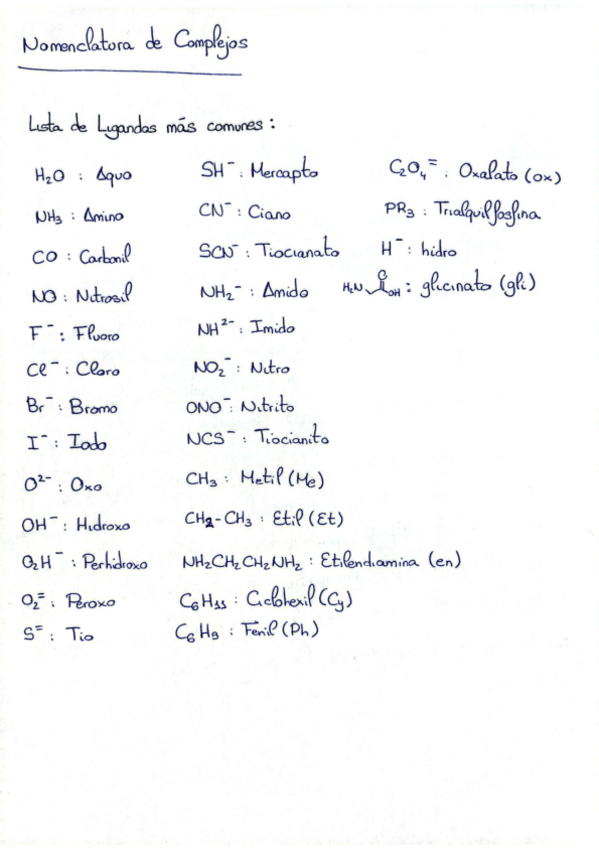 Nomenclatura de Complejos
Lista de Ligandos más comunes :
H₂O : Aquo
NH₃ : Amino
CO : Carbonil
NO : Nitrosil
F⁻ : Fluoro
Cl⁻ : Cloro
Br⁻ : Bromo
I⁻ : Iodo
O²⁻ : Oxo
OH⁻ : Hidroxo
O₂H⁻ : Perhidroxo
O₂⁼ : Peroxo
S⁼ : Tio
SH⁻ : Mercapto
CN⁻ : Ciano
SCN⁻ : Tiocianato
NH₂⁻ : Amido
NH²⁻ : Imido
NO₂⁻ : Nitro
ONO⁻ : Nitrito
NCS⁻ : Tiocianito
CH₃ : Metil (Me)
CH₂-CH₃ : Etil (Et)
NH₂CH₂CH₂NH₂ : Etilendiamina (en)
C₆H₁₁ : Ciclohexil (Cy)
C₆H₉ : Fenil (Ph)
C₂O₄⁼ : Oxalato (ox)
PR₃ : Trialquilfosfina
H⁻ : hidro
H₂N OH : glicinato (gli)